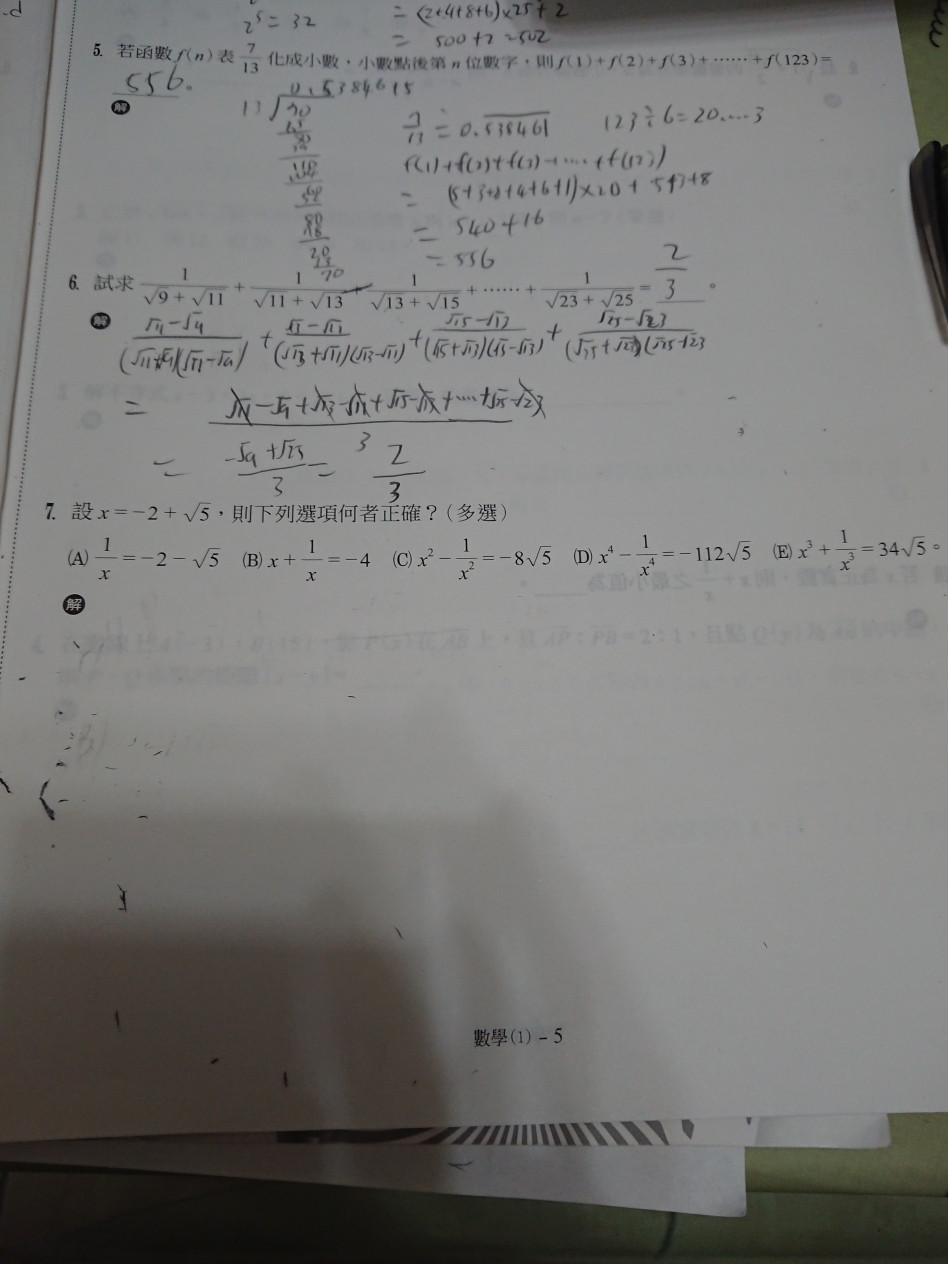 2⁵ = 32
= (2+4+8+6)×25+2
= 500+2=502
5. 若函數 f(n) 表 7/13 化成小數,小數點後第 n 位數字,則 f(1)+f(2)+f(3)+⋯⋯+f(123)=
556。
解
0.5384615
13 70
7/13 = 0.538461 123÷6=20…3
f(1)+f(2)+f(3)+……+f(123)
= (5+3+8+4+6+1)×20+5+3+8
= 540+16
= 556
6. 試求 1/(√9+√11) + 1/(√11+√13) + 1/(√13+√15) +⋯⋯+ 1/(√23+√25) = 2/3 。
解
(√11-√9)/((√11+√9)(√11-√9)) + (√13-√11)/((√13+√11)(√13-√11)) + (√15-√13)/((√15+√13)(√15-√13)) + (√25-√23)/((√25+√23)(√25-√23
= (√11-√9+√13-√11+√15-√13+……+√25-√23)/3
= (-√9+√25)/3 = 2/3
7. 設 x=-2+√5,則下列選項何者正確?(多選)
(A) 1/x=-2-√5 (B) x+1/x=-4 (C) x²-1/x²=-8√5 (D) x⁴-1/x⁴=-112√5 (E) x³+1/x³=34√5。
解
數學(1)-5